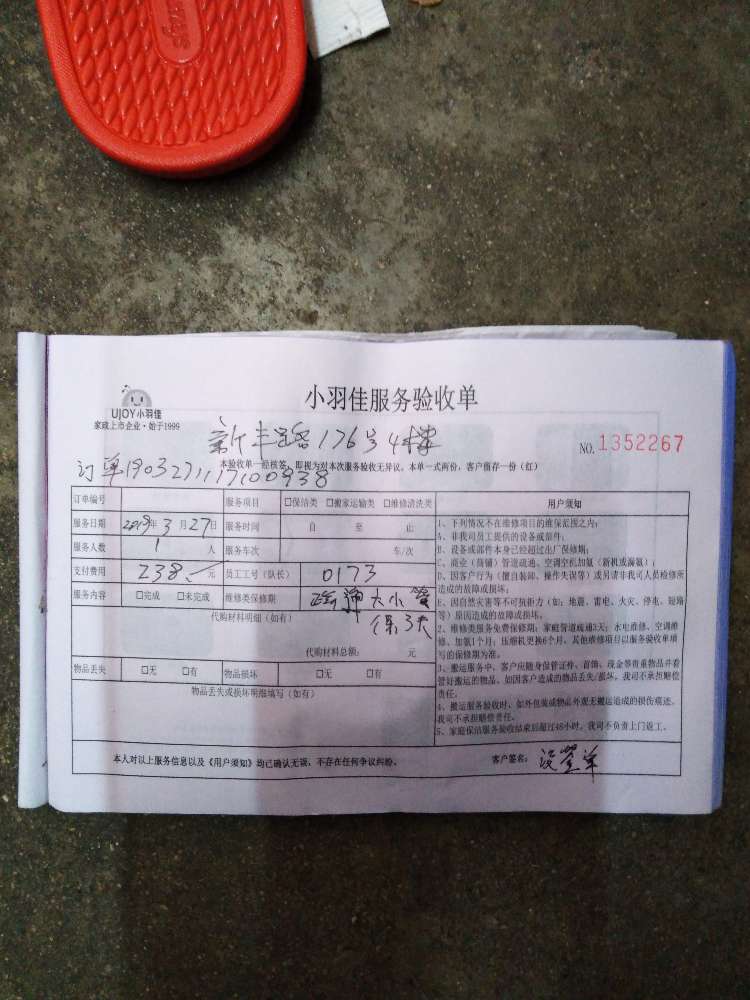 小羽佳服务验收单
UJOY小羽佳
家政上市企业·始于1999
新丰路176号4楼
NO. 1352267
本验收单一经核签，即视为对本次服务验收无异议。本单一式两份，客户留存一份（红）
订单1903271117100938
订单编号 服务项目 □保洁类 □搬家运输类 □维修清洗类
服务日期 2019年 3 月 27日 服务时间 自 至 止
服务人数 1 人 服务车次 车/次
支付费用 238 元 员工工号（队长） 0173
服务内容 □完成 □未完成 维修类保修期 大小管
保3天
代购材料明细（如有）
代购材料总额： 元
物品丢失 □无 □有 物品损坏 □无 □有
物品丢失或损坏明细填写（如有）
用户须知
1、下列情况不在维修项目的维保范围之内：
A、非我司员工提供的设备或部件；
B、设备或部件本身已经超过出厂保修期；
C、商业（商铺）管道疏通、空调空机加氟（新机或漏氟）；
D、因客户行为（擅自装卸、操作失误等）或另请非我司人员检修所
造成的故障或损坏；
E、因自然灾害等不可抗拒力（如：地震、雷电、火灾、停电、短路
等）原因造成的故障或损坏。
2、维修类服务免费保修期：家庭管道疏通3天；水电维修、空调维
修、加氟1个月；压缩机更换6个月。其他维修项目以服务验收单填
写的保修期为准。
3、搬运服务中，客户应随身保管证件、首饰、现金等贵重物品并看
管好搬运的物品。如因客户造成的物品丢失/损坏，我司不承担赔偿
责任。
4、搬运服务验收时，如外包装或物品外观无搬运造成的损伤痕迹，
我司不承担赔偿责任。
5、家庭保洁服务验收结束后超过48小时，我司不负责上门返工。
本人对以上服务信息以及《用户须知》均已确认无误，不存在任何争议纠纷。 客户签名：